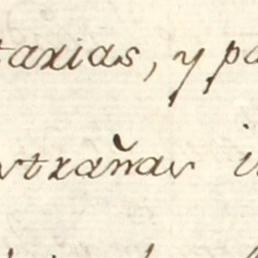 taxias, y pa
strañas i